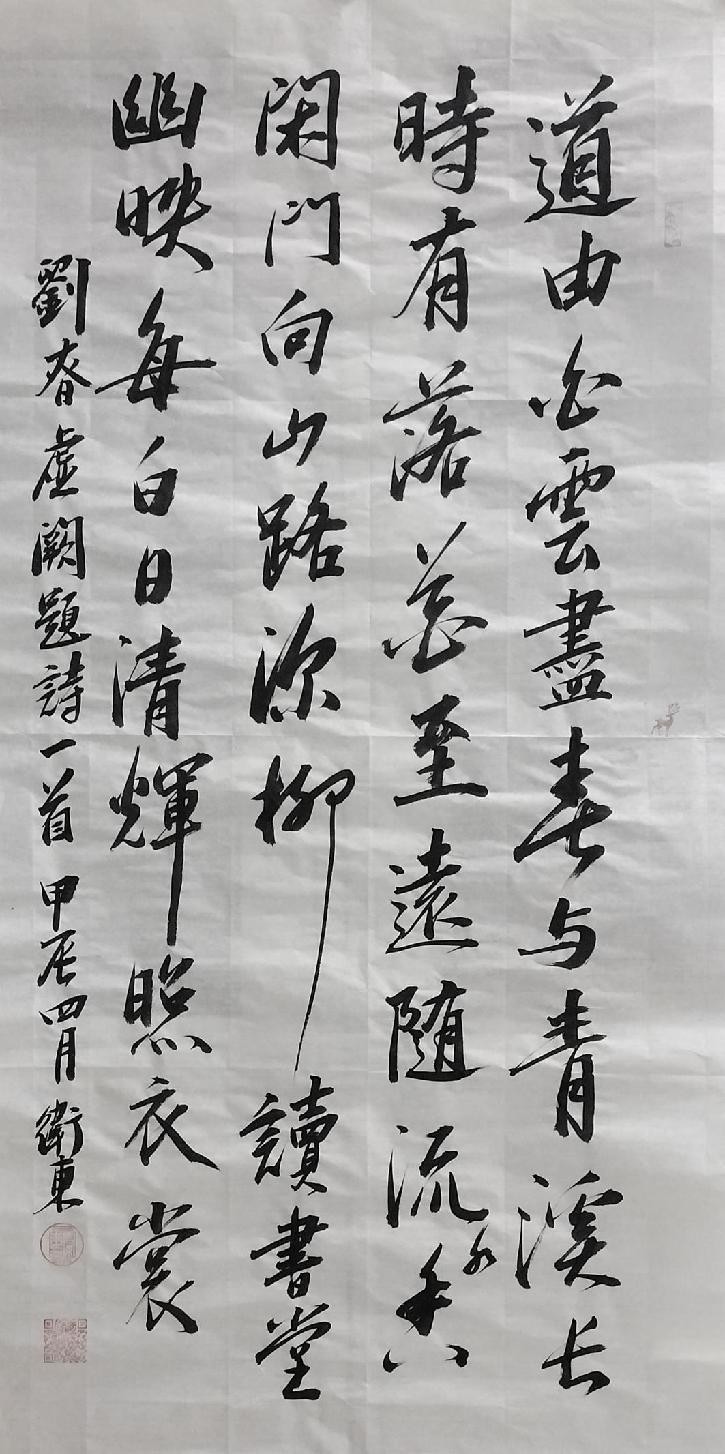 道由白雲盡春与青溪长
時有落花至遠随流水香
閑門向山路深柳讀書堂
幽映每白日清輝照衣裳
劉眘虛闕題詩一首 甲辰四月 衛東